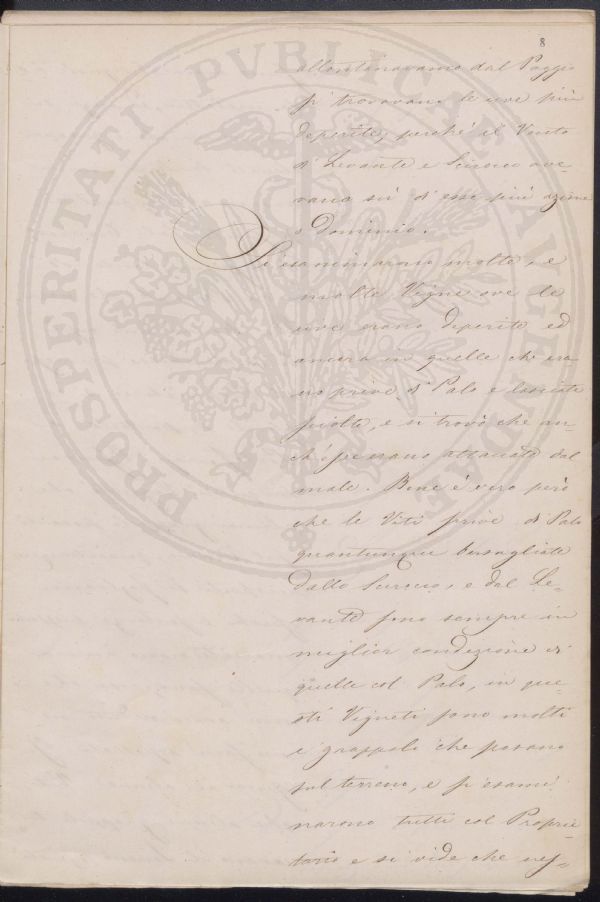 8
allontanavamo dal Poggio
si trovavano le uve più
deperite, perchè il Vento
di Levante e Sirocco ave-
vano sù d'esse più azione
o dominio.
Si esaminarono molte, e
molte Vigne ove le
uve erano deperite ed
ancora in quelle che era-
no prive di Palo e lasciate
sciolte, e si trovò che an-
ch'esse erano attaccate dal
male. Bene è vero però
che le Viti prive di Palo
quantunque bersagliate
dallo Scirocco, e dal Le-
vante sono sempre in
miglior condizione di
quelle col Palo, in que-
sti Vigneti sono molti
i grappoli che posano
sul terreno, e si esami
narono tutti col Proprie-
tario e si vide che nes-
PROSPERITATI PVBLICAE AVGENDAE